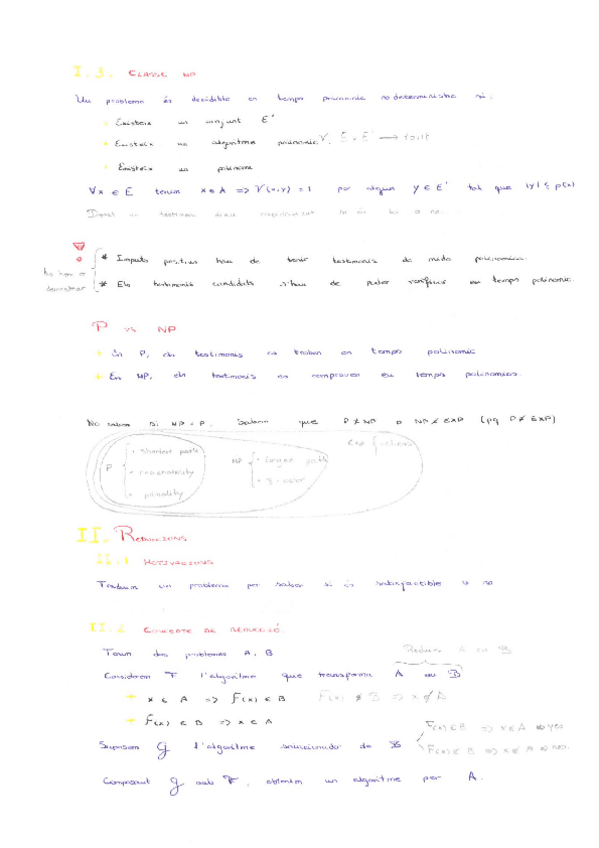 I.3. CLASSE NP
Un problema és decidible en temps polinòmic no determinista si:
+ Existeix un conjunt E'
+ Existeix un algoritme polinòmic V: E × E' → {0,1}
+ Existeix un polinomi
∀x ∈ E tenim x ∈ A => V(x,y) = 1 per algun y ∈ E' tal que |y| ≤ p(x)
Donat un testimoni si és bo o no.
* Inputs positius han de tenir testimonis de mida polinòmica.
Ho hem de demostrar
* Els testimonis candidats s'han de poder verificar en temps polinòmic.
P vs NP
+ En P, els testimonis es troben en temps polinòmic
+ En NP, els testimonis es comproven en temps polinòmic.
No sabem si NP = P. Sabem que P ≠ NP o NP ≠ EXP (pq P ≠ EXP)
P
• Shortest path
• primality
NP
• Longest path
• 3-color
EXP
II. REDUCCIONS
II.1 MOTIVACIONS
Tradueix un problema per saber si és satisfactible o no
II.2 CONCEPTE DE REDUCCIÓ.
Tenim dos problemes A, B
Reduir A en B
Considerem F l'algoritme que transforma A en B
+ x ∈ A => F(x) ∈ B F(x) ∉ B => x ∉ A
+ F(x) ∈ B => x ∈ A
F(x) ∈ B => x ∈ A
Suposem G l'algoritme solucionador de B
Composant G amb F, obtenim un algoritme per A.